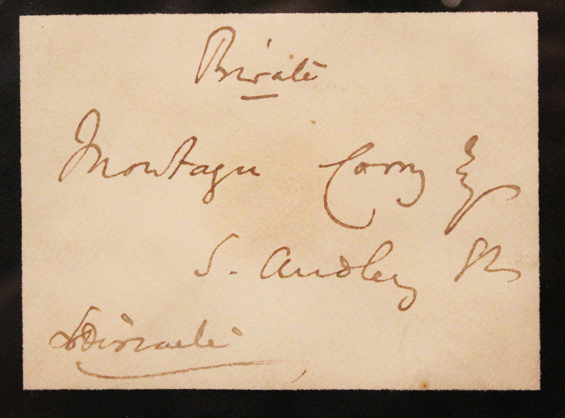 Private
Montagu Corry Esq
S. Audley St
BDisraeli